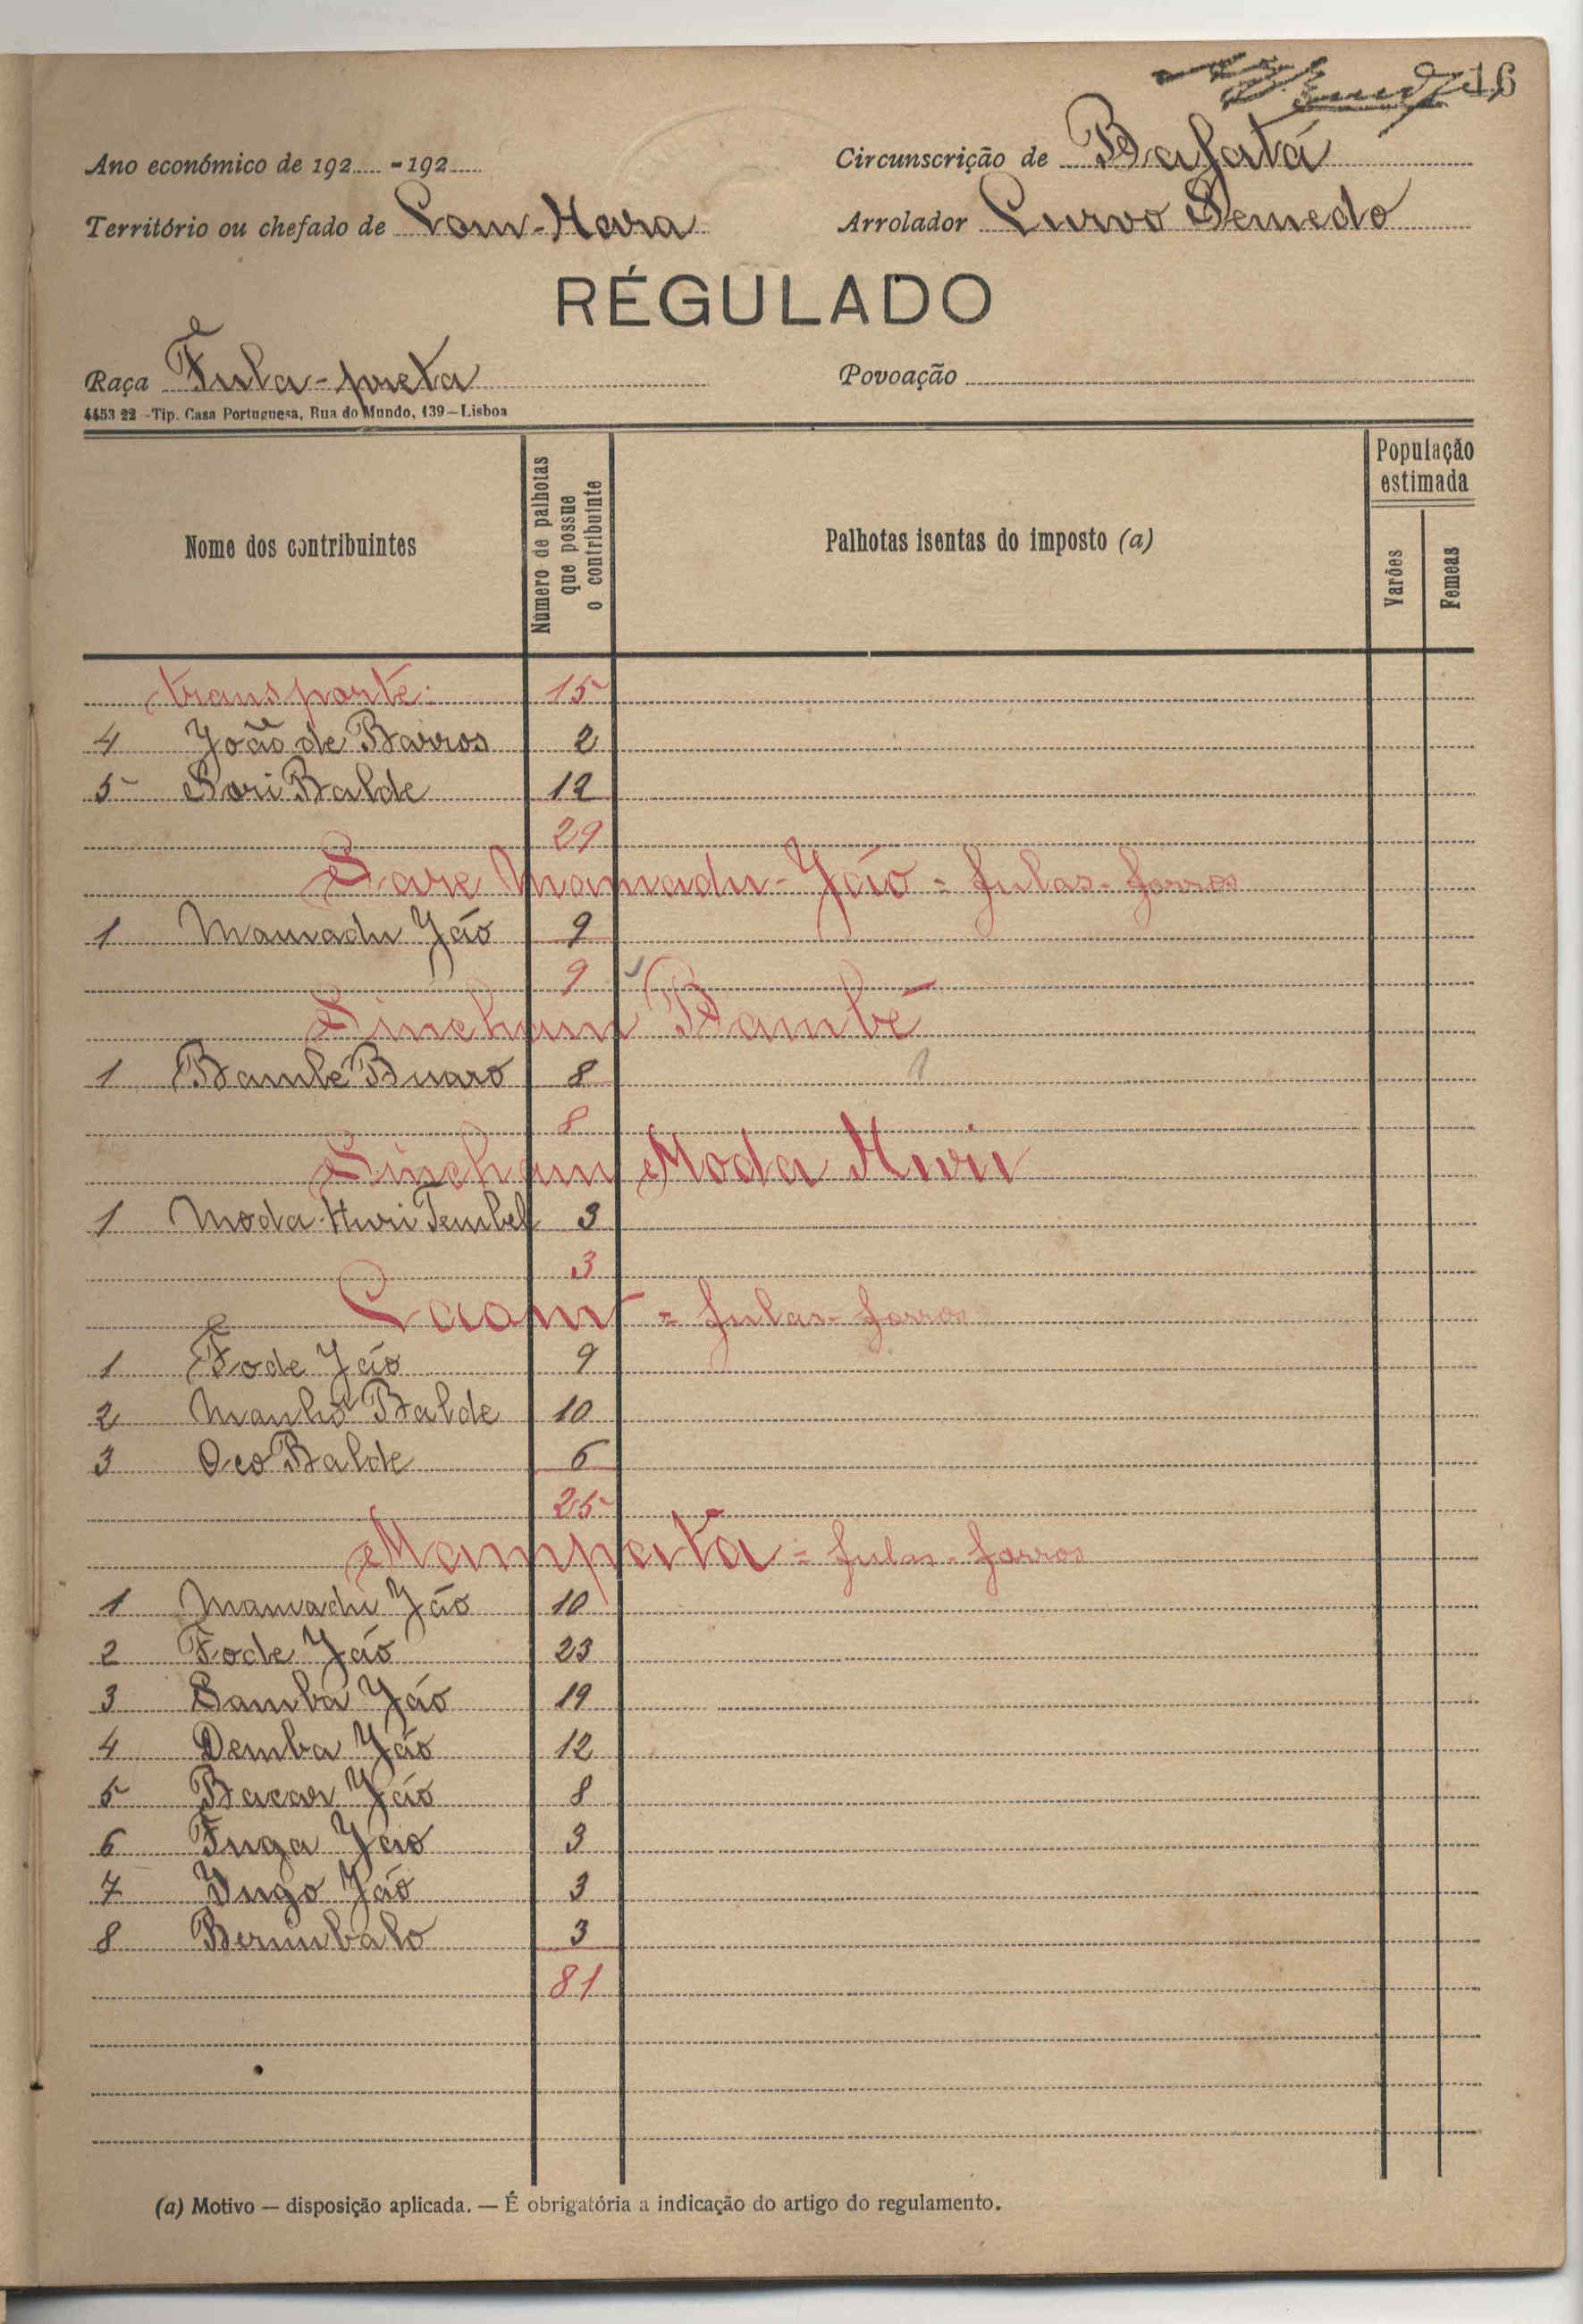 16
Ano económico de 192 - 192
Circunscrição de Bafatá
Território ou chefado de
Arrolador Curvo Semedo
RÉGULADO
Raça Fula-preta
Povoação
4453 22 - Tip. Casa Portuguesa, Rua do Mundo, 139 — Lisboa
Nome dos contribuintes
Número de palhotas que possue o contribuinte
Palhotas isentas do imposto (a)
População estimada
Varões
Femeas
transporte: 15
4 João de Barros 2
5 Sori Balde 12
29
Sare Mamadu-Jáo = fulas-forros
1 Mamadu Jáo 9
9
Sincham Bambé
1 Bambé Buaro 8
8
Sincham Moda Huri
1 Moda Huri 3
3
= fulas-forros
1 Fode Jáo 9
2 Balde 10
3 Balde 6
25
Mampata = fulas-forros
1 Mamadu Jáo 10
2 Fode Jáo 23
3 Samba Jáo 19
4 Demba Jáo 12
5 Bacar Jáo 8
6 Fuga Jáo 3
7 Jáo 3
8 3
81
(a) Motivo — disposição aplicada. — É obrigatória a indicação do artigo do regulamento.